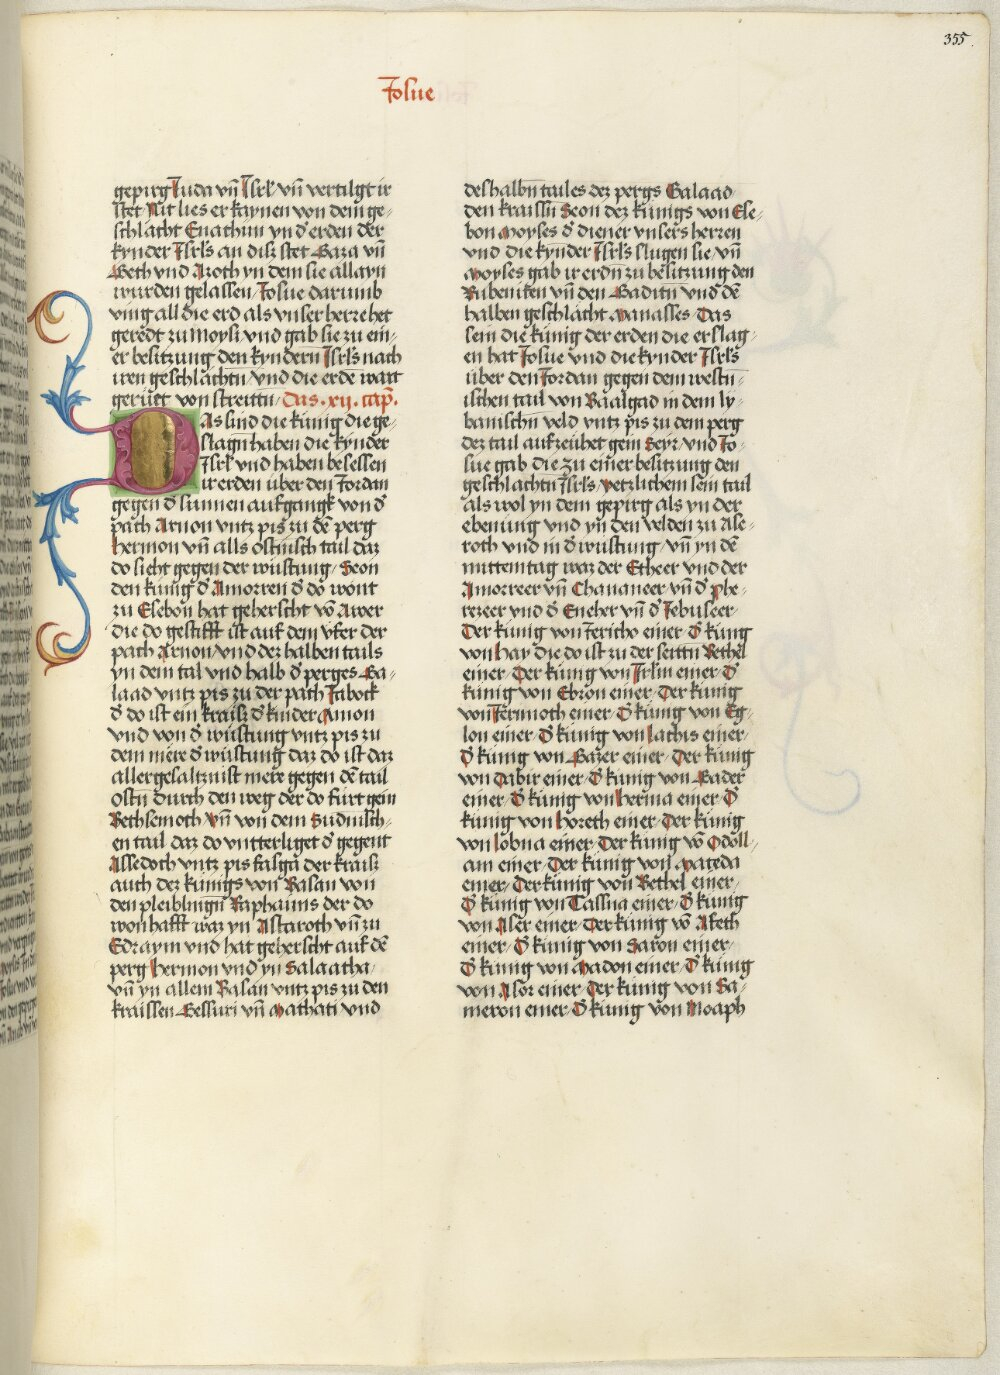 355
Josue
gepirg Juda vn̄ Jsrl̄ vn̄ vertilgt ir
stet Nit lies er kaynen von dem ge-
schlächt Enachim yn d̕ erden der
kynder Jsrl̄s an dis̈ stet Gaza vn̄
Geth vnd Azoth yn dem sie allayn
wurden gelassen Josue darumb
ving all die erd als vnser herre het
geredt zu Moysi vnd gab sie zu ein-
er besitzung den kyndern Jsrl̄s nach
iren geschlachtn̄ vnd die erde wart
geruet von streittn̄ Das .xij. cap̄.
Das sind die kunig die ge-
slagn̄ haben die kynder
Jsrl̄ vnd haben besessen
ir erden uber den Jordan
gegen d̕ sunnen aufgangk von d̕
pach Arnon vntz pis zu dē perg
hermon vn̄ alls ostnisch tail daz
do sieht gegen der wustung Seon
den kunig d̕ Amorren d̕ do wont
zu Esebon hat geherscht vō Aroer
die do gestifft ist auf dem vfer der
pach Arnon vnd dez halben tails
yn dem tal vnd halb d̕ perges Ga-
laad vntz pis zu der pach Jabock
d̕ do ist ein kraisz d̕ kinder Amon
vnd von d̕ wustung vntz pis zu
dem mere d̕ wustung daz do ist daz
allergesaltznist mere gegen dē tail
ostn̄ durch den weg der do furt gein
Bethsemoth vn̄ von dem Sudnisch-
en tail daz do vntterliget d̕ gegent
Assedoth vntz pis fasga der kraisz
auch dez kunigs von Basan von
den pleiblingn̄ Raphaims der do
wonhafft waz yn Astaroth vn̄ zu
Edraym vnd hat geherscht auf dē
perg hermon vnd yn Salaacha
vn̄ yn allem Basan vntz pis zu den
kraissen Gessuri vn̄ Machati vnd
des halbn̄ tailes dez pergs Galaad
den kraissn̄ Seon dez kunigs von Ese-
bon Moyses d̕ diener vnsers herren
vnd die kynder Jsrl̄s slugen sie vn̄
Moyses gab ir erdn̄ zu besitzung den
Rubeniten vn̄ den Gaditn̄ vnd dē
halben geschlächt Manasses Das
sein die kunig der erden die erslag-
en hat Josue vnd die kynder Jsrl̄s
uber den Jordan gegen dem westn̄-
ischen tail von Baalgad in dem ly-
banischn̄ veld vntz pis zu dem perg
dez tail aufzeuhet gein Seyr vnd Jo-
sue gab die zu einer besitzung den
geschlachtn̄ Jsrl̄s yetzlichem sein tail
als wol yn dem gepirg als yn der
ebenung vnd yn den velden zu Ase-
roth vnd in d̕ wustung vn̄ yn dē
mittemtag waz der Etheer vnd der
Amorreer vn̄ Chananeer vn̄ d̕ phe-
rezeer vnd d̕ Eueher vn̄ d̕ Jebuseer
Der kunig von Jericho einer D̕ kung
von Hay die do ist zu der seittn̄ Bethel
einer Der kung von Jrlm einer D̕
kunig von Ebron einer Der kunig
von Jerimoth einer D̕ kunig von Eg-
lon einer D̕ kunig von lachis einer
D̕ kunig von Gazer einer Der kunig
von Dabir einer D̕ kunig von Gader
einer D̕ kunig von herma einer D̕
kunig von horeth einer Der kunig
von lobna einer Der kunig vō Odoll-
am einer Der kunig von Maceda
einer Der kunig von Bethel einer
D̕ kunig von Tassua einer D̕ kunig
von Aser einer Der kunig vō Afeth
einer D̕ kunig von Saron einer
D̕ kunig von Madon einer D̕ kunig
von Asor einer Der kunig von Sa-
meron einer D̕ kunig von Moaph